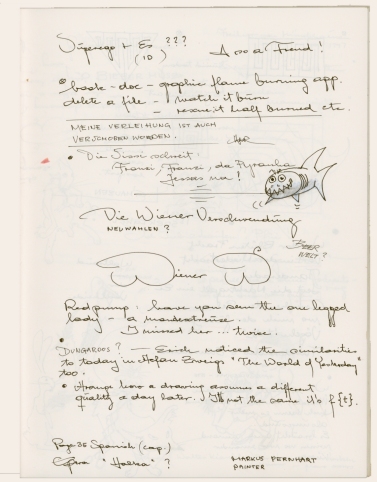 Superego + Es ???
(ID)
Also a Freud!
book-doc-graphic flame burning app.
delete a file - watch it burn
- rescue it half burned etc.
MEINE VERLEIHUNG IST AUCH
VERSCHOBEN WORDEN.
• Die Sissi schreit:
Franzi, Franzi, da Pyranha
Jessas na!
Die Wiener Verschwendung
NEUWAHLEN?
BEER
WELT?
Wiener W
Red pump: have you seen the one legged
lady - a
I missed her ... twice.
DUNGAROOS? - noticed the similarities
to today in Stefan Zweigs "The World of Yesterday"
too.
• Strange how a drawing assumes a different
quality a day later. It's not the same it's f{t}.
Page 36 Spanish (cap.)
Opera " " ?
MARKUS PERNHART
PAINTER